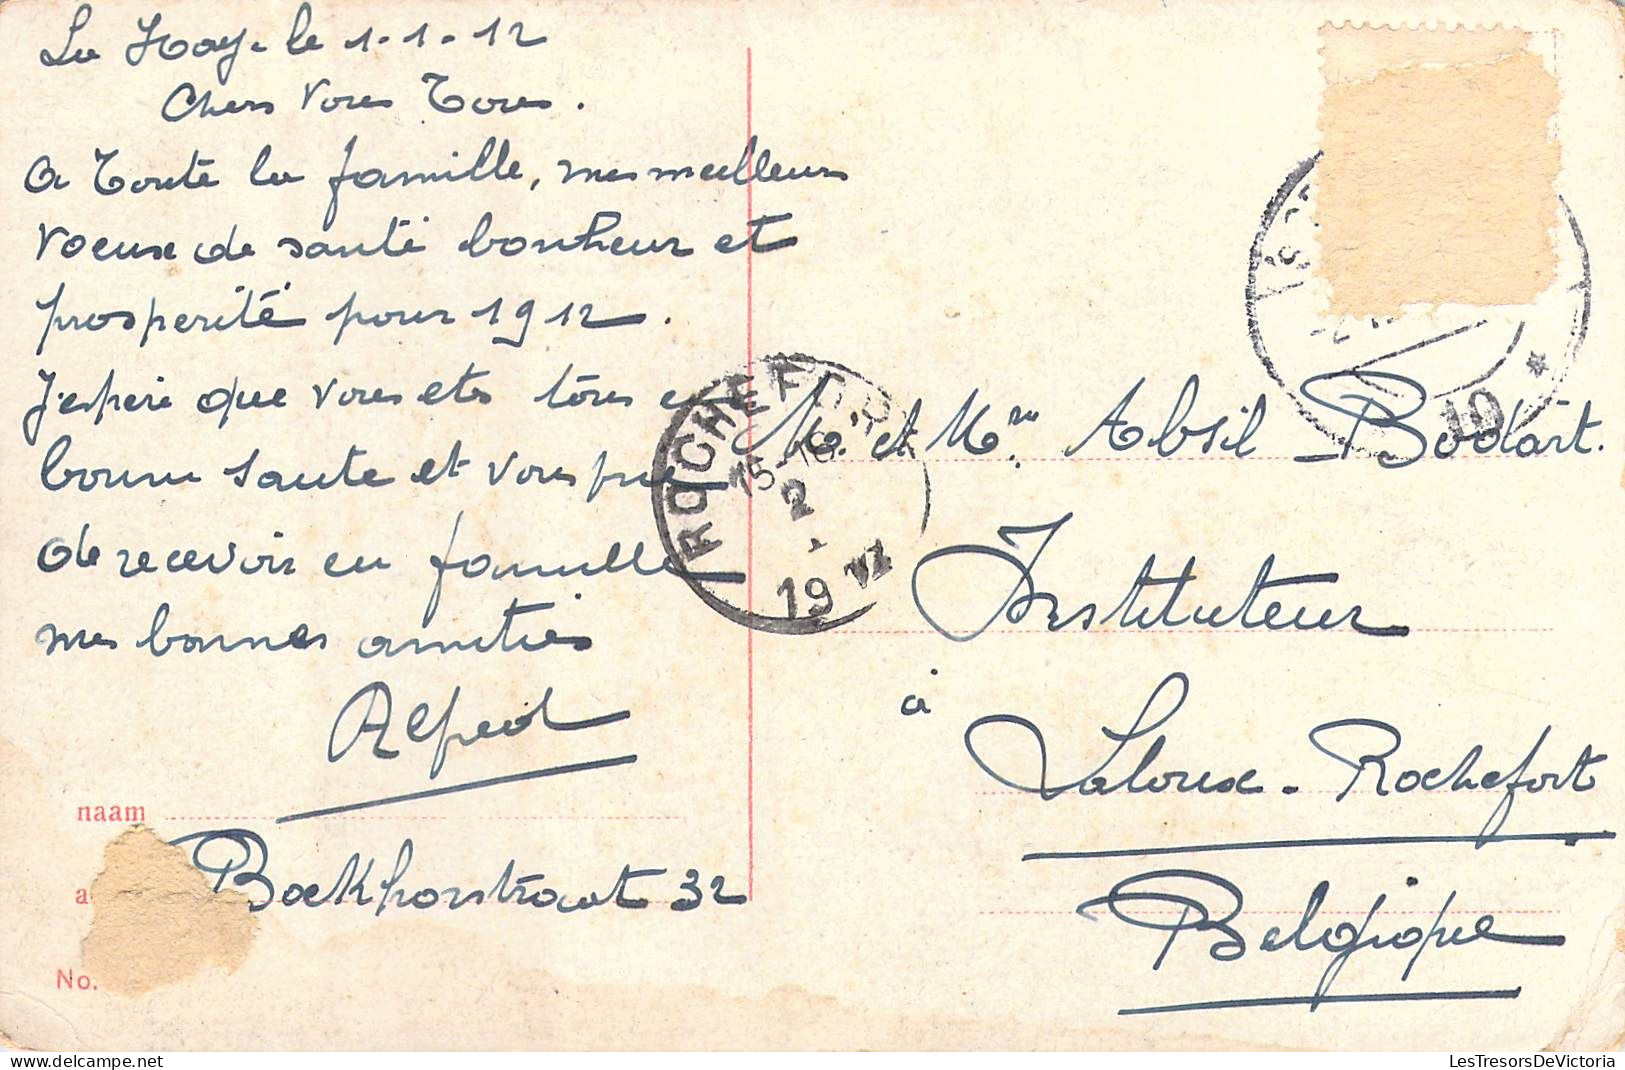 La Hay. le 1-1-12
Chers Vous Tous.
a toute la famille, mes meilleurs
voeux de santé bonheur et
prosperité pour 1912.
J'espere que vous etes tous en
bonne sante et vous prie
de recevoir en famille
mes bonnes amitiés
Alfred
naam
Boekhorstraat 32
No.
ROCHEFORT
15-16
2
1912
10
M. et Mme. Absil-Bodart.
Instituteur
à
Laloux-Rochefort
Belgique
LesTresorsDeVictoria